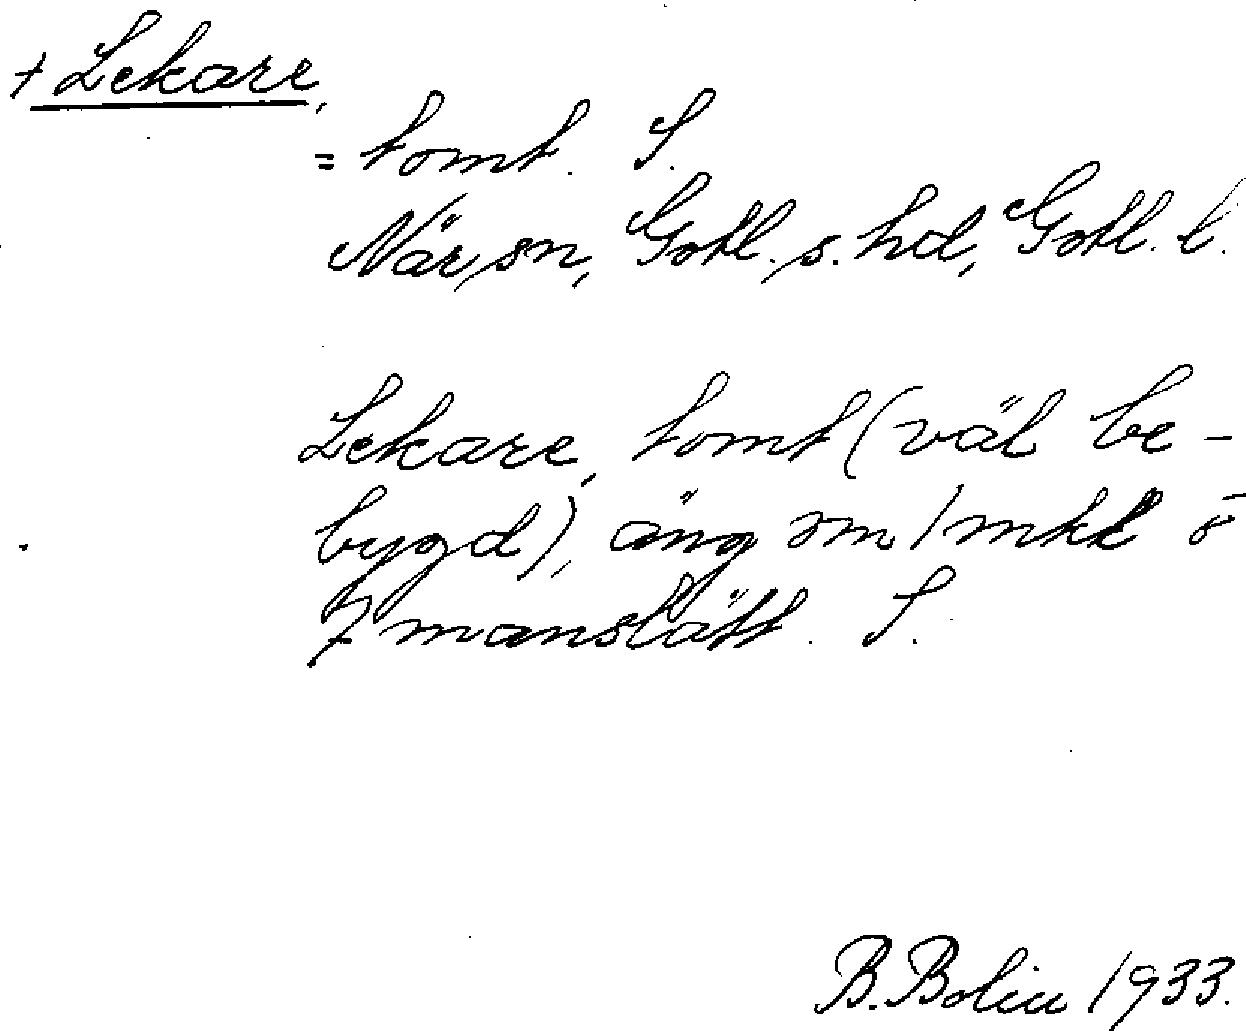 + Lekare,
= tomt. S.
När sn, Gotl. s. hd, Gotl. l.
Lekare, tomt (väl be-
bygd), äng om 1 mkl o
7 manslätt. S.
B. Bolin 1933.